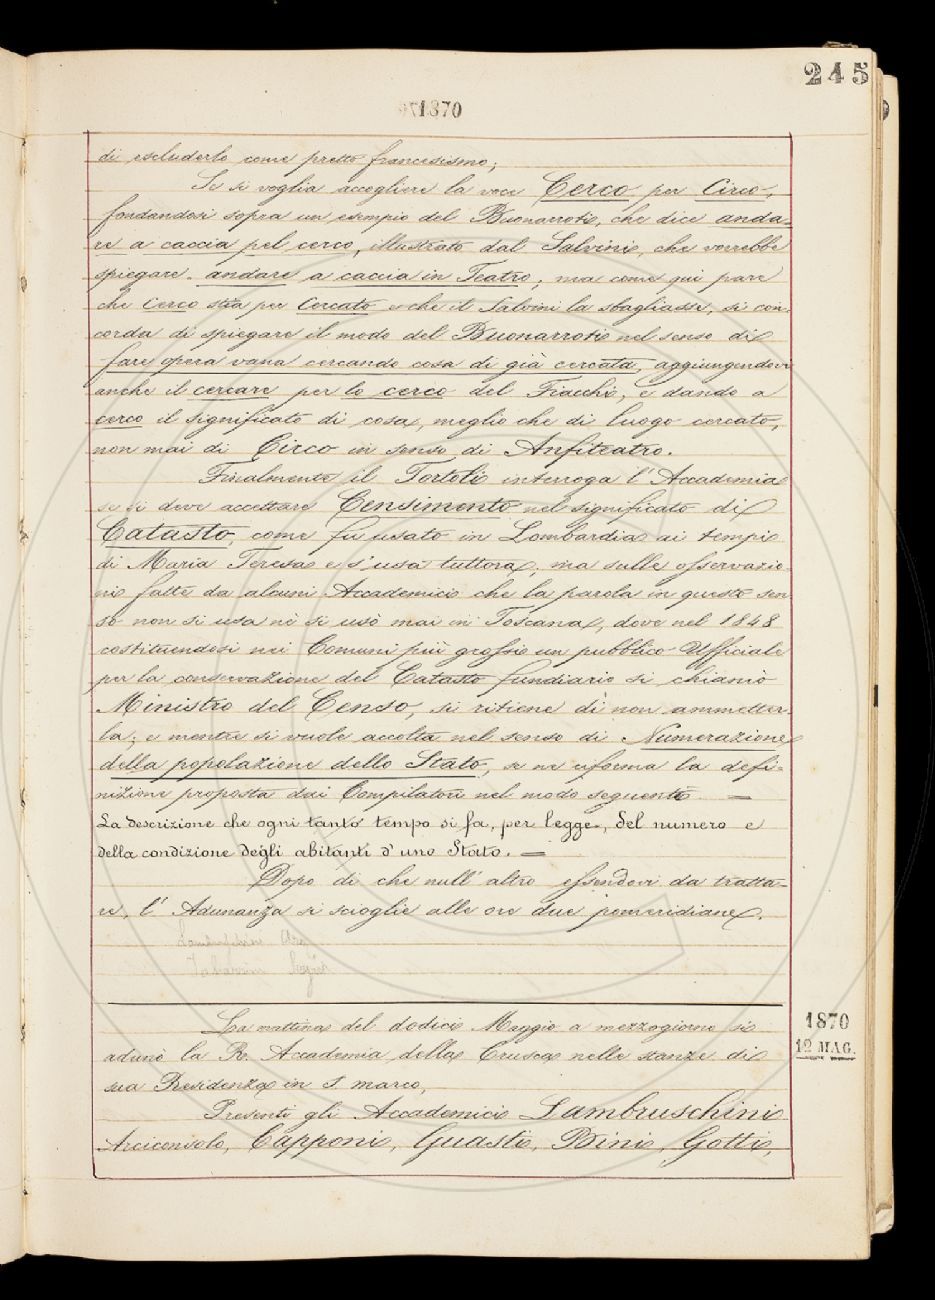 245
1870
di escluderlo come pretto francesismo;
Se si voglia accogliere la voce Cerco per Circo,
fondandosi sopra un esempio del Buonarroti, che dice anda-
re a caccia pel cerco, illustrato dal Salvini, che vorrebbe
spiegare andare a caccia in Teatro; ma come qui pare
che Cerco stia per Cercato e che il Salvini la sbagliasse, si con-
corda di spiegare il modo del Buonarroti nel senso di
fare opera vana cercando cosa di già cercata, aggiungendovi
anche il cercare per lo cerco del Fiacchi, e dando a
cerco il significato di cosa, meglio che di luogo cercato,
non mai di Circo in senso di Anfiteatro.
Finalmente il Tortoli interroga l'Accademia
se si deve accettare Censimento nel significato di
Catasto, come fu usato in Lombardia ai tempi
di Maria Teresa e s'usa tuttora; ma sulle osservazio-
ni fatte da alcuni Accademici che la parola in questo sen
so non si usa nè si usò mai in Toscana, dove nel 1848
costituendosi nei Comuni più grossi un pubblico Ufficiale
per la conservazione del Catasto fundiario si chiamò
Ministro del Censo, si ritiene di non ammetter-
la; e mentre si vuole accolta nel senso di Numerazione
della popolazione dello Stato, se ne riforma la defi-
nizione proposta dai Compilatori nel modo seguente —
La descrizione che ogni tanto tempo si fa, per legge, del numero e
della condizione degli abitanti d'uno Stato. —
Dopo di che null'altro essendovi da tratta-
re, l'Adunanza si scioglie alle ore due pomeridiane.
Lambruschini Arci
Tabarrini Segr
La mattina del dodici Maggio a mezzogiorno si
adunò la R. Accademia della Crusca nelle stanze di
sua Residenza in S. Marco,
1870
12 MAG.
Presenti gli Accademici Lambruschini
Arciconsolo, Capponi, Guasti, Bini, Gotti,